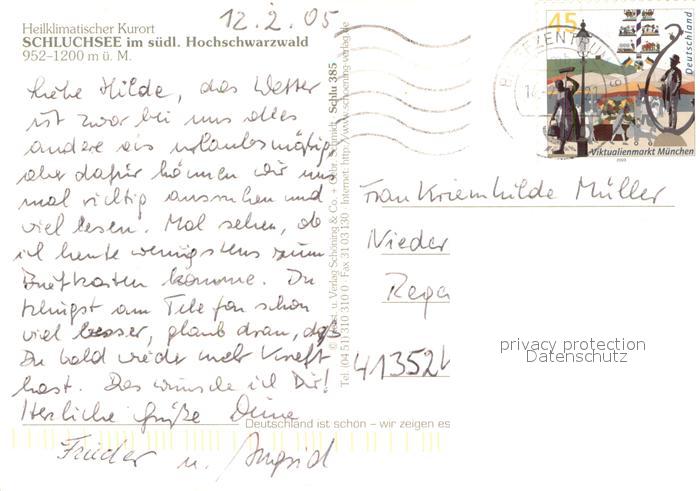 12.2.05
Heilklimatischer Kurort
SCHLUCHSEE im südl. Hochschwarzwald
952–1200 m ü. M.
Liebe Hilde, das Wetter
ist zwar bei uns alles
andere als urlaubsmäßig
aber dafür können wir uns
mal richtig ausruhen und
viel lesen. Mal sehen, ob
ich heute wenigstens zum
Briefkasten komme. Du
klingst am Telefon schon
viel besser, glaub dran, daß
Du bald wieder mehr Kraft
hast. Das wünsche ich Dir!
Herzliche Grüße Deine
Frieder u. Ingrid
Schöning & Co. + Gebr. Schmidt Schlu 385
Tel. (04 51) 310 310 0 Fax 31 03 130 Internet: http://www.schoening-verlag.de
Deutschland ist schön – wir zeigen es
45
Deutschland
BRIEFZENTRUM
Viktualienmarkt München
2003
Frau Kriemhilde Müller
Nieder
Rega
41352
privacy protection
Datenschutz